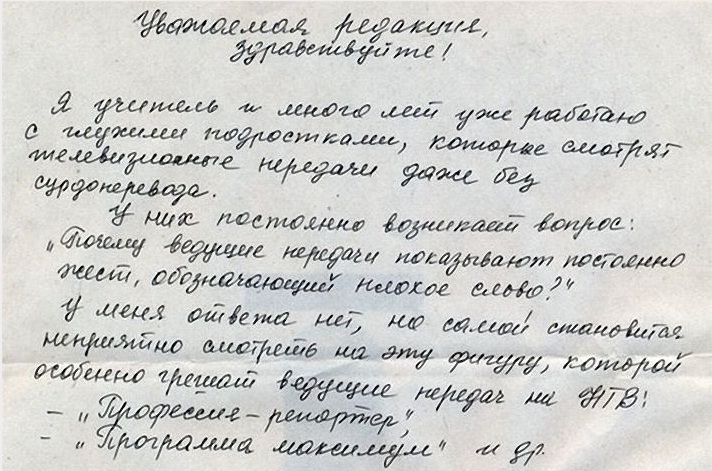 Уважаемая редакция,
здравствуйте!
Я учитель и много лет уже работаю
с глухими подростками, которые смотрят
телевизионные передачи даже без
сурдоперевода.
У них постоянно возникает вопрос:
„Почему ведущие передачи показывают постоянно
жест, обозначающий плохое слово?"
У меня ответа нет, но самой становится
неприятно смотреть на эту фигуру, которой
особенно грешат ведущие передач на НТВ:
– „Профессия – репортёр",
– „Программа максимум" и др.